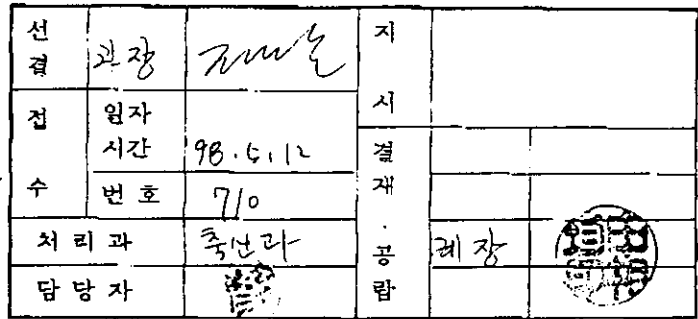 선 결 과장 지 시
접 수 일자 시간 98.5.12 결 재 · 공 람
번호 710
처리과 축산과 계장
담당자